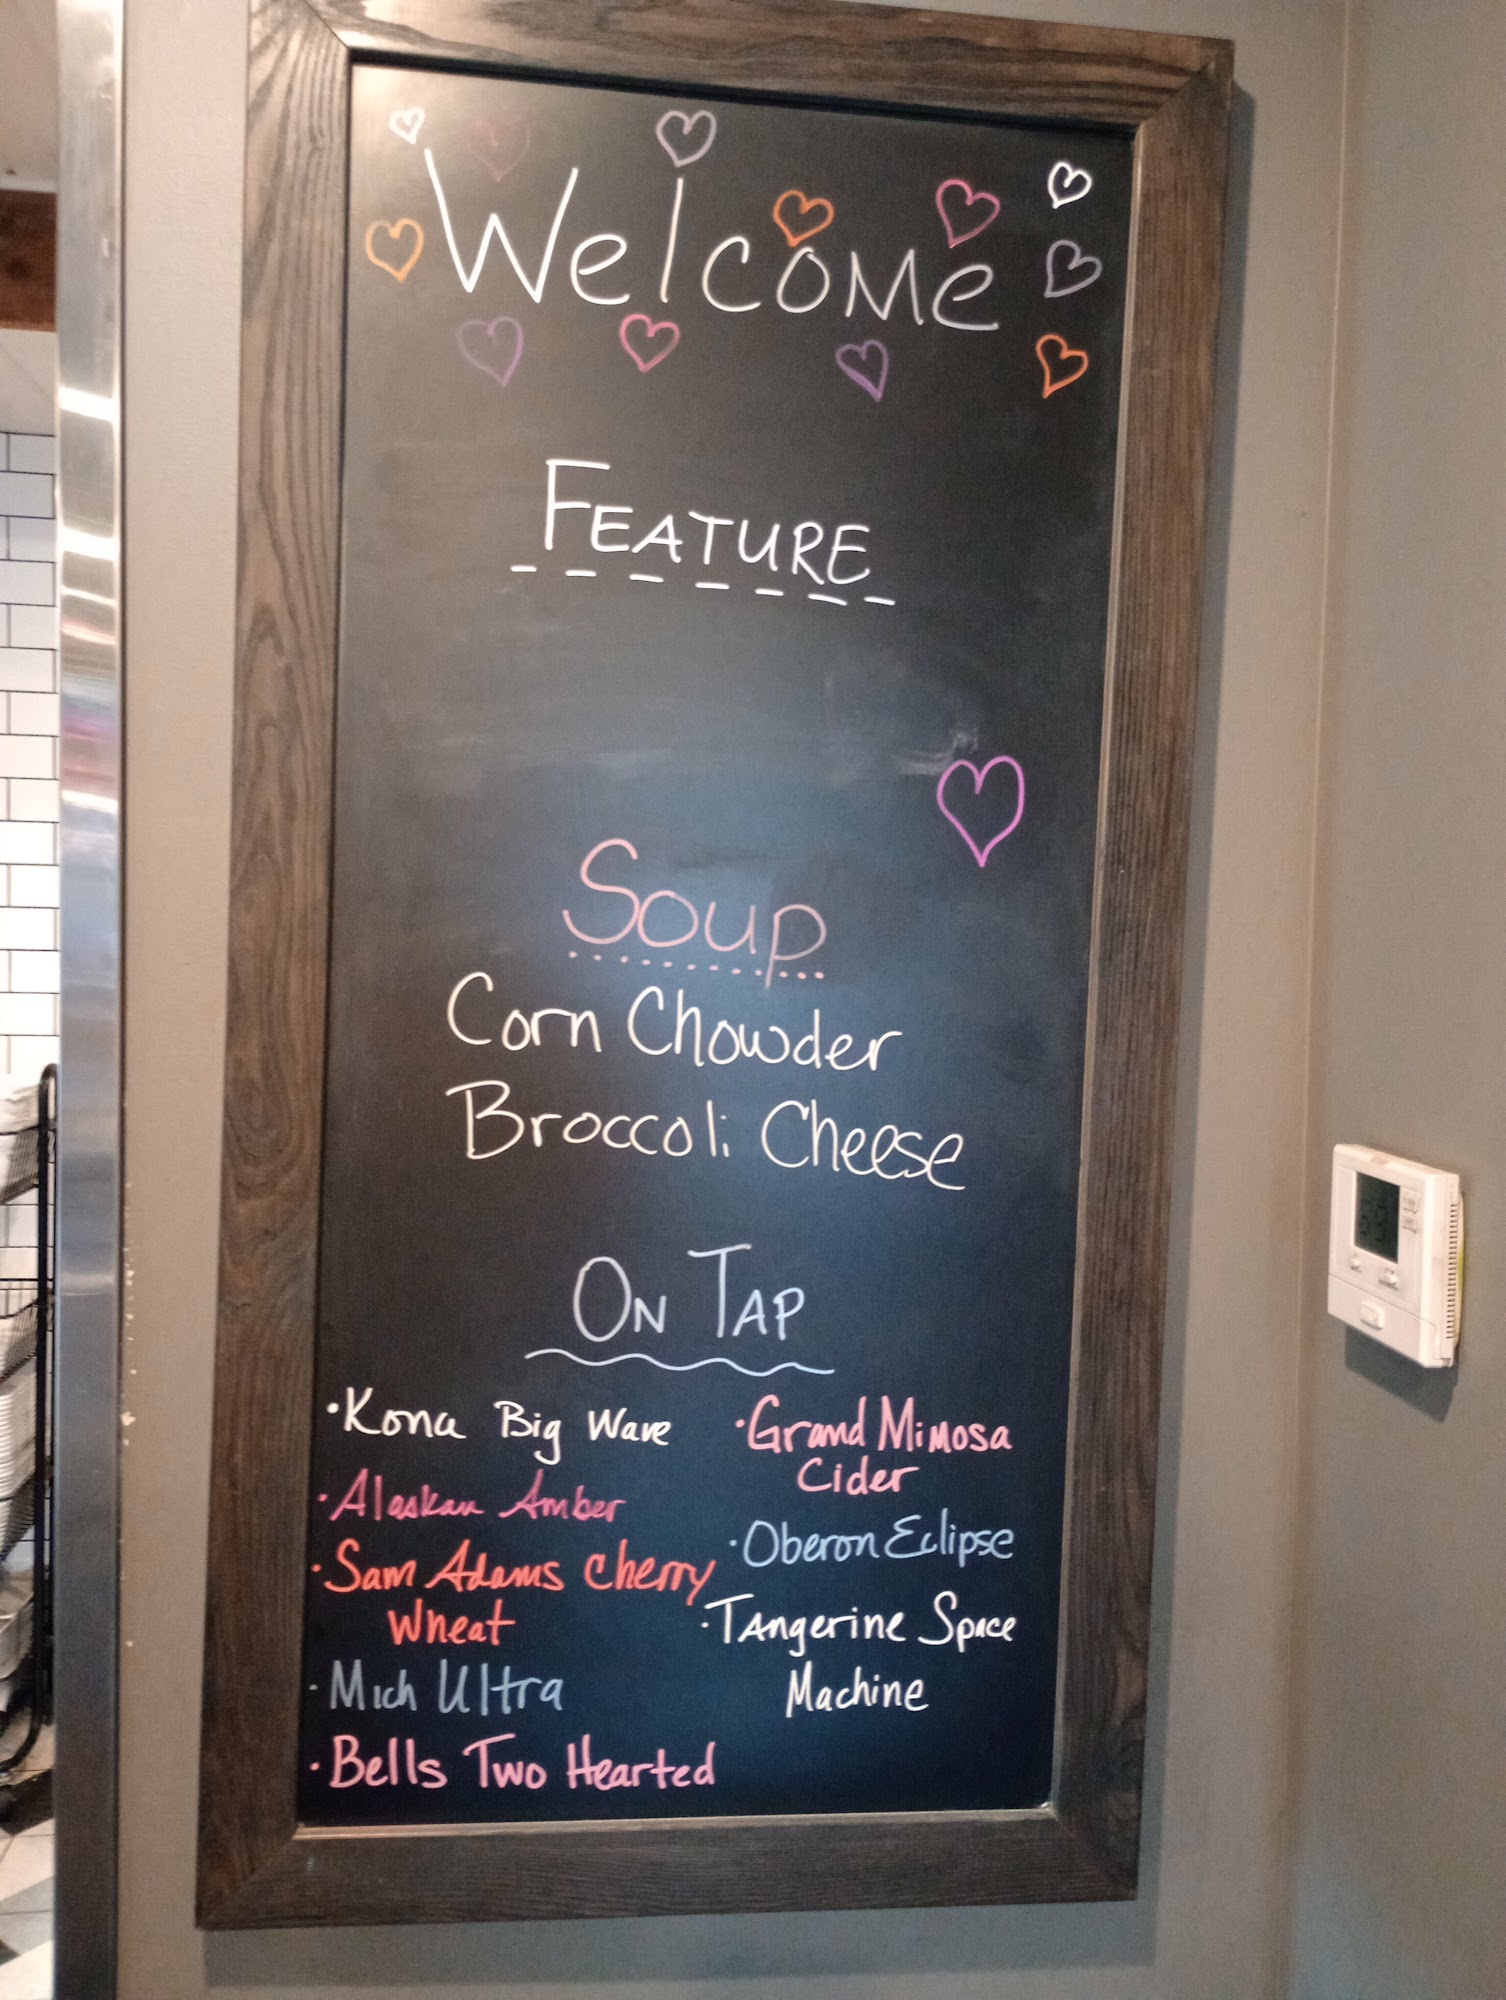 Welcome
FEATURE
Soup
Corn Chowder
Broccoli Cheese
ON TAP
·Kona Big Wave
·Alaskan Amber
·Sam Adams Cherry
Wheat
·Mich Ultra
·Bells Two Hearted
·Grand Mimosa
Cider
·Oberon Eclipse
·TAngerine Space
Machine